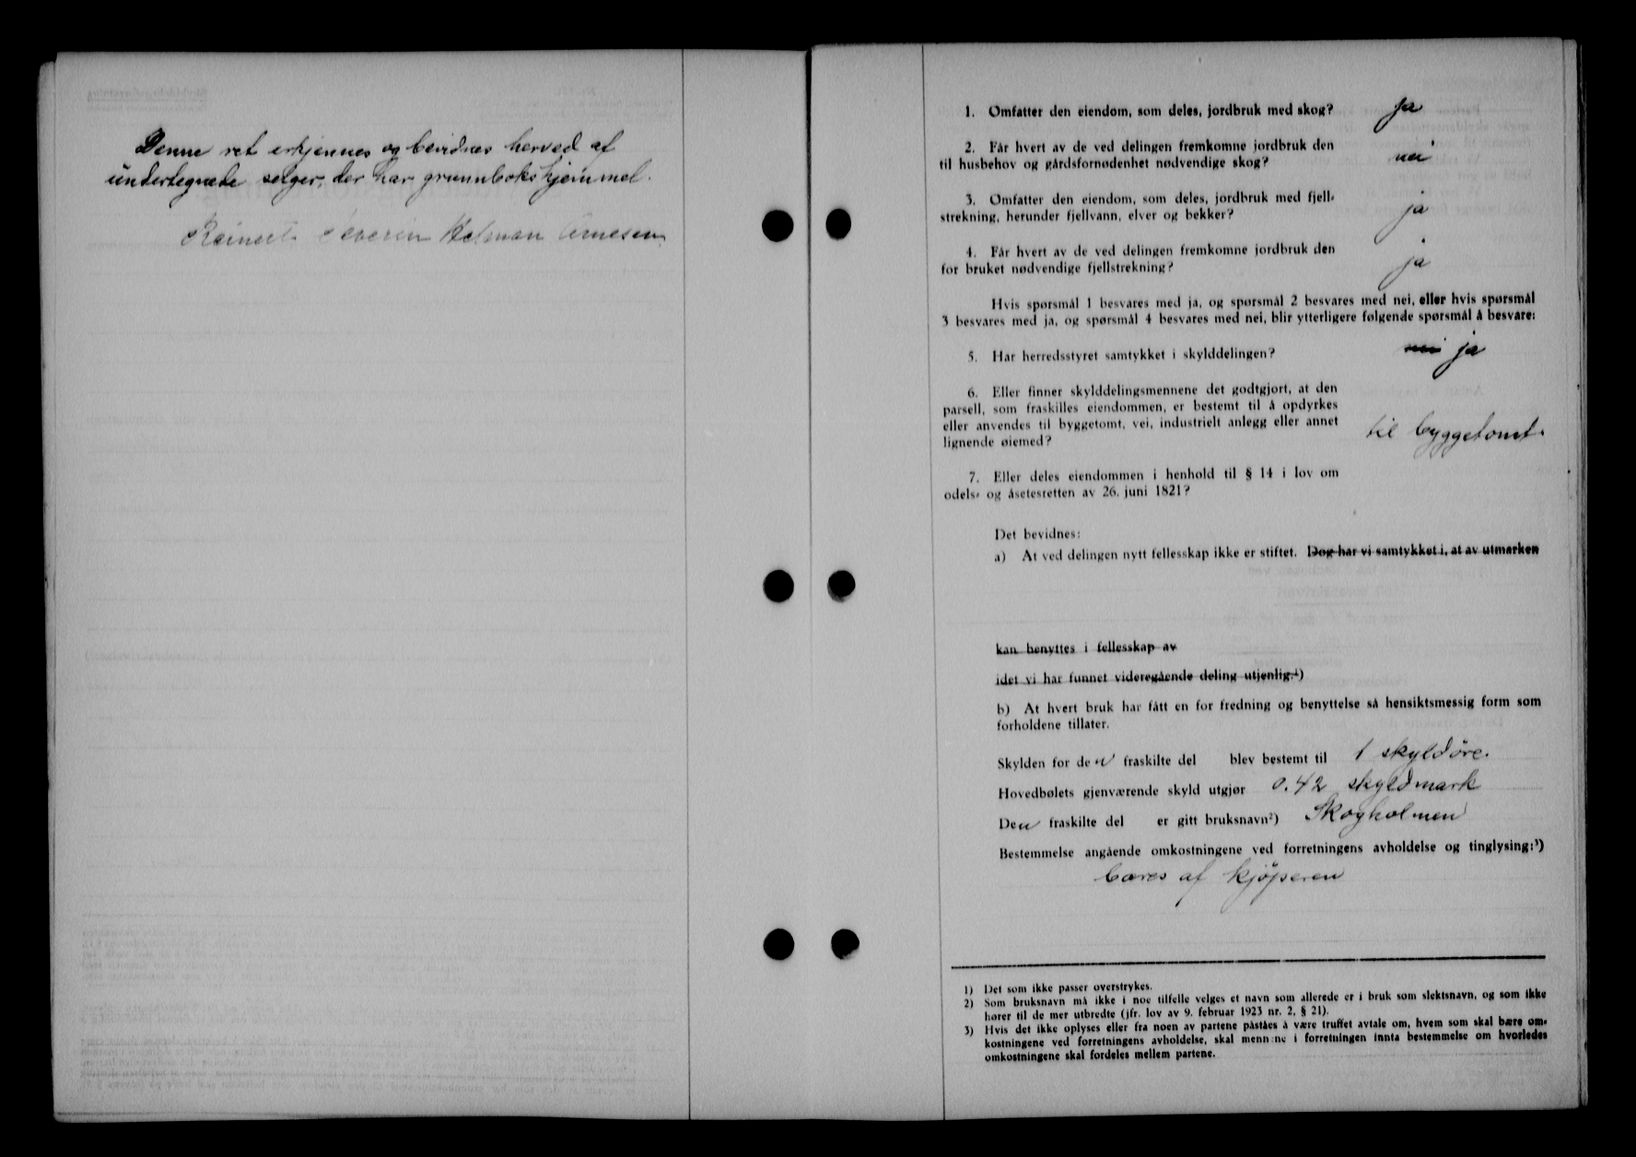 Denne ret erkjennes og bevidnes herved af
undertegnede selger, der har grunnbokshjemmel.
Reinert Severin Holman Arnesen
1. Omfatter den eiendom, som deles, jordbruk med skog? ja
2. Får hvert av de ved delingen fremkomne jordbruk den
til husbehov og gårdsfornødenhet nødvendige skog? nei
3. Omfatter den eiendom, som deles, jordbruk med fjell-
strekning, herunder fjellvann, elver og bekker? ja
4. Får hvert av de ved delingen fremkomne jordbruk den
for bruket nødvendige fjellstrekning? ja
Hvis spørsmål 1 besvares med ja, og spørsmål 2 besvares med nei, eller hvis spørsmål
3 besvares med ja, og spørsmål 4 besvares med nei, blir ytterligere følgende spørsmål å besvare:
5. Har herredsstyret samtykket i skylddelingen? nei ja
6. Eller finner skylddelingsmennene det godtgjort, at den
parsell, som fraskilles eiendommen, er bestemt til å opdyrkes
eller anvendes til byggetomt, vei, industrielt anlegg eller annet
lignende øiemed? til byggetomt.
7. Eller deles eiendommen i henhold til § 14 i lov om
odels- og åsetesretten av 26. juni 1821?
Det bevidnes:
a) At ved delingen nytt fellesskap ikke er stiftet. Dog har vi samtykket i, at av utmarken
kan benyttes i fellesskap av
idet vi har funnet videregående deling utjenlig.¹)
b) At hvert bruk har fått en for fredning og benyttelse så hensiktsmessig form som
forholdene tillater.
Skylden for den fraskilte del blev bestemt til 1 skyldöre.
Hovedbølets gjenværende skyld utgjør 0.42 skyldmark
Den fraskilte del er gitt bruksnavn²) Skogholmen
Bestemmelse angående omkostningene ved forretningens avholdelse og tinglysing:³)
bæres af kjöperen
1) Det som ikke passer overstrykes.
2) Som bruksnavn må ikke i noe tilfelle velges et navn som allerede er i bruk som slektsnavn, og som ikke
hører til de mer utbredte (jfr. lov av 9. februar 1923 nr. 2, § 21).
3) Hvis det ikke oplyses eller fra noen av partene påståes å være truffet avtale om, hvem som skal bære om-
kostningene ved forretningens avholdelse, skal mennene i forretningen innta bestemmelse om hvorledes
omkostningene skal fordeles mellem partene.